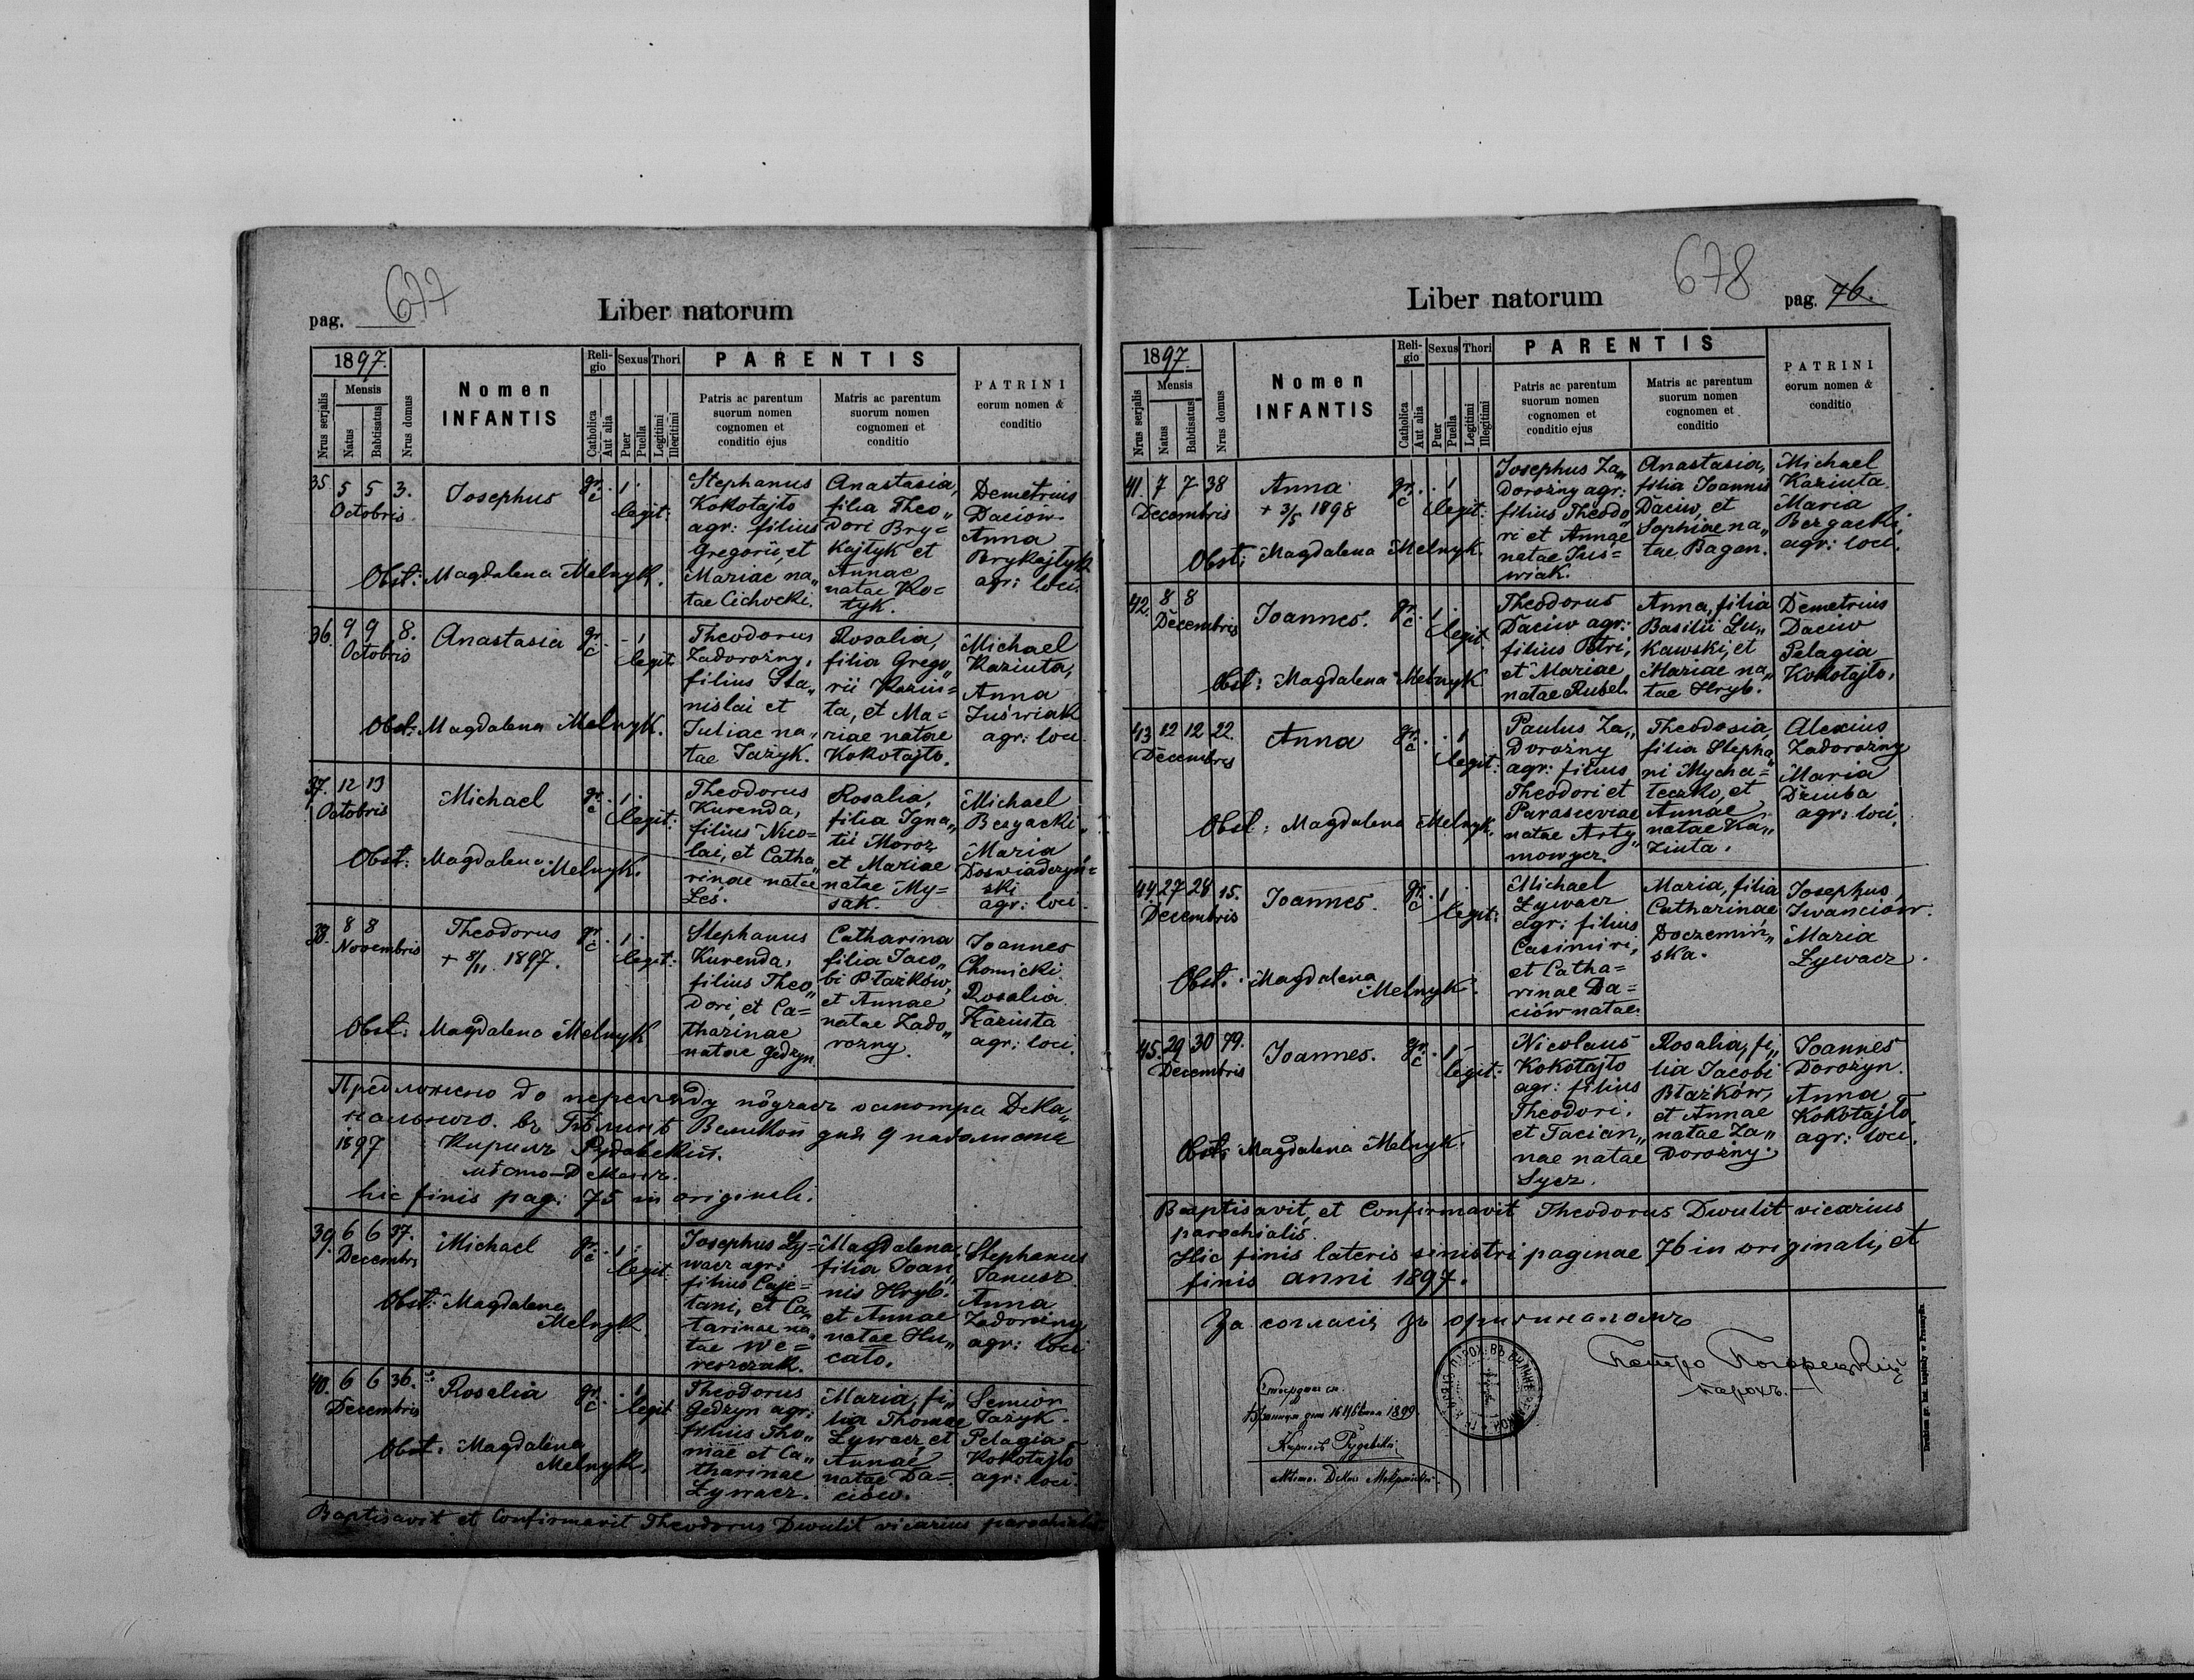 677
pag.
Liber natorum
1897.
Nrus serjalis
Mensis
Natus
Babtisatus
Nrus domus
Nomen
INFANTIS
Religio
Catholica
Aut alia
Sexus
Puer
Puella
Thori
Legitimi
Illegitimi
PARENTIS
Patris ac parentum
suorum nomen
cognomen et
conditio ejus
Matris ac parentum
suorum nomen
cognomen et
conditio
PATRINI
eorum nomen &
conditio
35 5 5 3.
Octobris
Josephus
gr. c
1
legit:
Stephanus
Kokotajło
agr: filius
Gregorii, et
Mariae na„
tae Cichocki.
Anastasia,
filia Theo„
dori Bry=
kajtyk et
Annae
natae Ko=
tyk.
Demetrius
Daciów
Anna
Brykajtyk
agr: loci.
Obst: Magdalena Melnyk.
36. 9 9 8.
Octobris
Anastasia
gr. c
1
legit
Theodorus
Zadorożny,
filius Sta„
nislai et
Juliae na„
tae Jażyk.
Rosalia,
filia Grego„
rii Kaziu=
ta, et Ma=
riae natae
Kokotajło.
Michael
Kaziuta,
Anna
Juświak
agr: loci
Obst: Magdalena Melnyk.
37. 12 13
Octobris
Michael
gr. c
1
legit:
Theodorus
Kurenda,
filius Nico=
lai, et Catha„
rinae natae
Leś.
Rosalia,
filia Igna„
tii Moroz
et Mariae
natae My=
sak.
Michael
Bergacki
Maria
Doswiadczyń=
ski
agr: loci.
Obst: Magdalena
Melnyk.
38. 8 8
Novembris
Theodorus
+ 8/11. 1897.
gr. c
1
legit:
Stephanus
Kurenda,
filius Theo„
dori, et Ca=
tharinae
natae Gedzyn
Catharina
filia Jaco„
bi Płazków,
et Annae
natae Zado„
rożny.
Joannes
Chomicki.
Rosalia
Kaziuta
agr: loci.
Obst: Magdalena Melnyk
Предложено до перегляду пôдчасъ осмотра Дека„
нального. въ
Великой дня 9 падолиста
1897
Кирилъ Рудавскій.
hic finis pag: 75 in originali.
39. 6 6 37.
Decembris
Michael
gr. c
1
legit
Josephus Ły=
wacz agr:
filius Caje=
tani, et Ca„
tarinae na„
tae We=
reszczak.
Magdalena,
filia Joan„
nis Hryb.
et Annae
natae Hu„
cało.
Stephanus
Janusz.
Anna
Zadorożny
agr: loci
Obst: Magdalena
Melnyk.
40. 6 6 36.
Decembris
Rosalia
gr. c
1
legit
Theodorus
Gedzyn agr:
filius Tho„
mae et Ca„
tharinae
Ływacz.
Maria, fi„
lia Thomae
Ływacz et
Annae
natae Da=
ciów.
Semion
Jażyk.
Pelagia
Kokotajło
agr: loci.
Obst: Magdalena
Melnyk.
Baptisavit et Confirmavit Theodorus Dwulit vicarius parochialis
678
Liber natorum
pag. 76.
1897.
Nrus serjalis
Mensis
Natus
Babtisatus
Nrus domus
Nomen
INFANTIS
Religio
Catholica
Aut alia
Sexus
Puer
Puella
Thori
Legitimi
Illegitimi
PARENTIS
Patris ac parentum
suorum nomen
cognomen et
conditio ejus
Matris ac parentum
suorum nomen
cognomen et
conditio
PATRINI
eorum nomen &
conditio
41. 7 7 38
Decembris
Anna
+ 3/5 1898
gr. c
1
legit:
Josephus Za„
dorożny agr:
filius Theodo„
ri et Annae
natae Jus=
wiak.
Anastasia,
filia Joannis
Daciw, et
Sophiae na„
tae Bagan.
Michael
Kaziuta.
Maria
Bergacki,
agr: loci.
Obst: Magdalena Melnyk.
42. 8 8
Decembris
Joannes.
gr. c
1
legit
Theodorus
Daciw agr:
filius Petri,
et Mariae
natae Rubel
Anna, filia
Basilii Łu„
kawski, et
Mariae na„
tae Hryb.
Demetrius
Daciw
Pelagia
Kokotajło.
Obst: Magdalena Melnyk
43 12 12 22.
Decembris
Anna
gr. c
1
legit:
Paulus Za„
dorożny
agr: filius
Theodori et
Parasceviae
natae Arty„
mowycz.
Theodosia,
filia Stepha„
ni Mycha=
leczko, et
Annae
natae Ka„
ziuta.
Alexius
Zadorożny
Maria
Dziuba
agr: loci.
Obst: Magdalena Melnyk.
44. 27 28 15.
Decembris
Joannes.
gr. c
1
legit:
Michael
Ływacz
agr: filius
Casimiri,
et Catha=
rinae Da=
ciów natae.
Maria, filia
Catharinae
Doczemiń„
ska.
Josephus
Iwanciów.
Maria
Ływacz.
Obst: Magdalena
Melnyk.
45. 29 30 79.
Decembris
Joannes.
gr. c
1
legit:
Nicolaus
Kokotajło
agr: filius
Theodori,
et Tacian„
nae natae
Sycz.
Rosalia, fi„
lia Jacobi
Błazków,
et Annae
natae Za„
dorożny.
Joannes
Dorożyn.
Anna
Kokotajło,
agr: loci.
Obst: Magdalena Melnyk.
Baptisavit, et Confirmavit Theodorus Dwulit vicarius
parochialis.
Hic finis lateris sinistri paginae 76 in originali, et
finis anni 1897.
За согласіе зъ оригиналомъ
Петро Погорецкій
парохъ.
1899.
Кирилъ Рудавскій